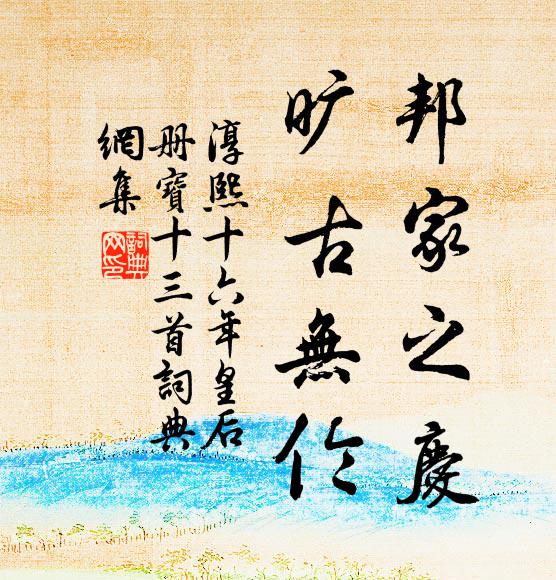 邦家之慶
旷古無伦
淳熙十六年皇后
册寶十三首詞典
網集
詞典
网印